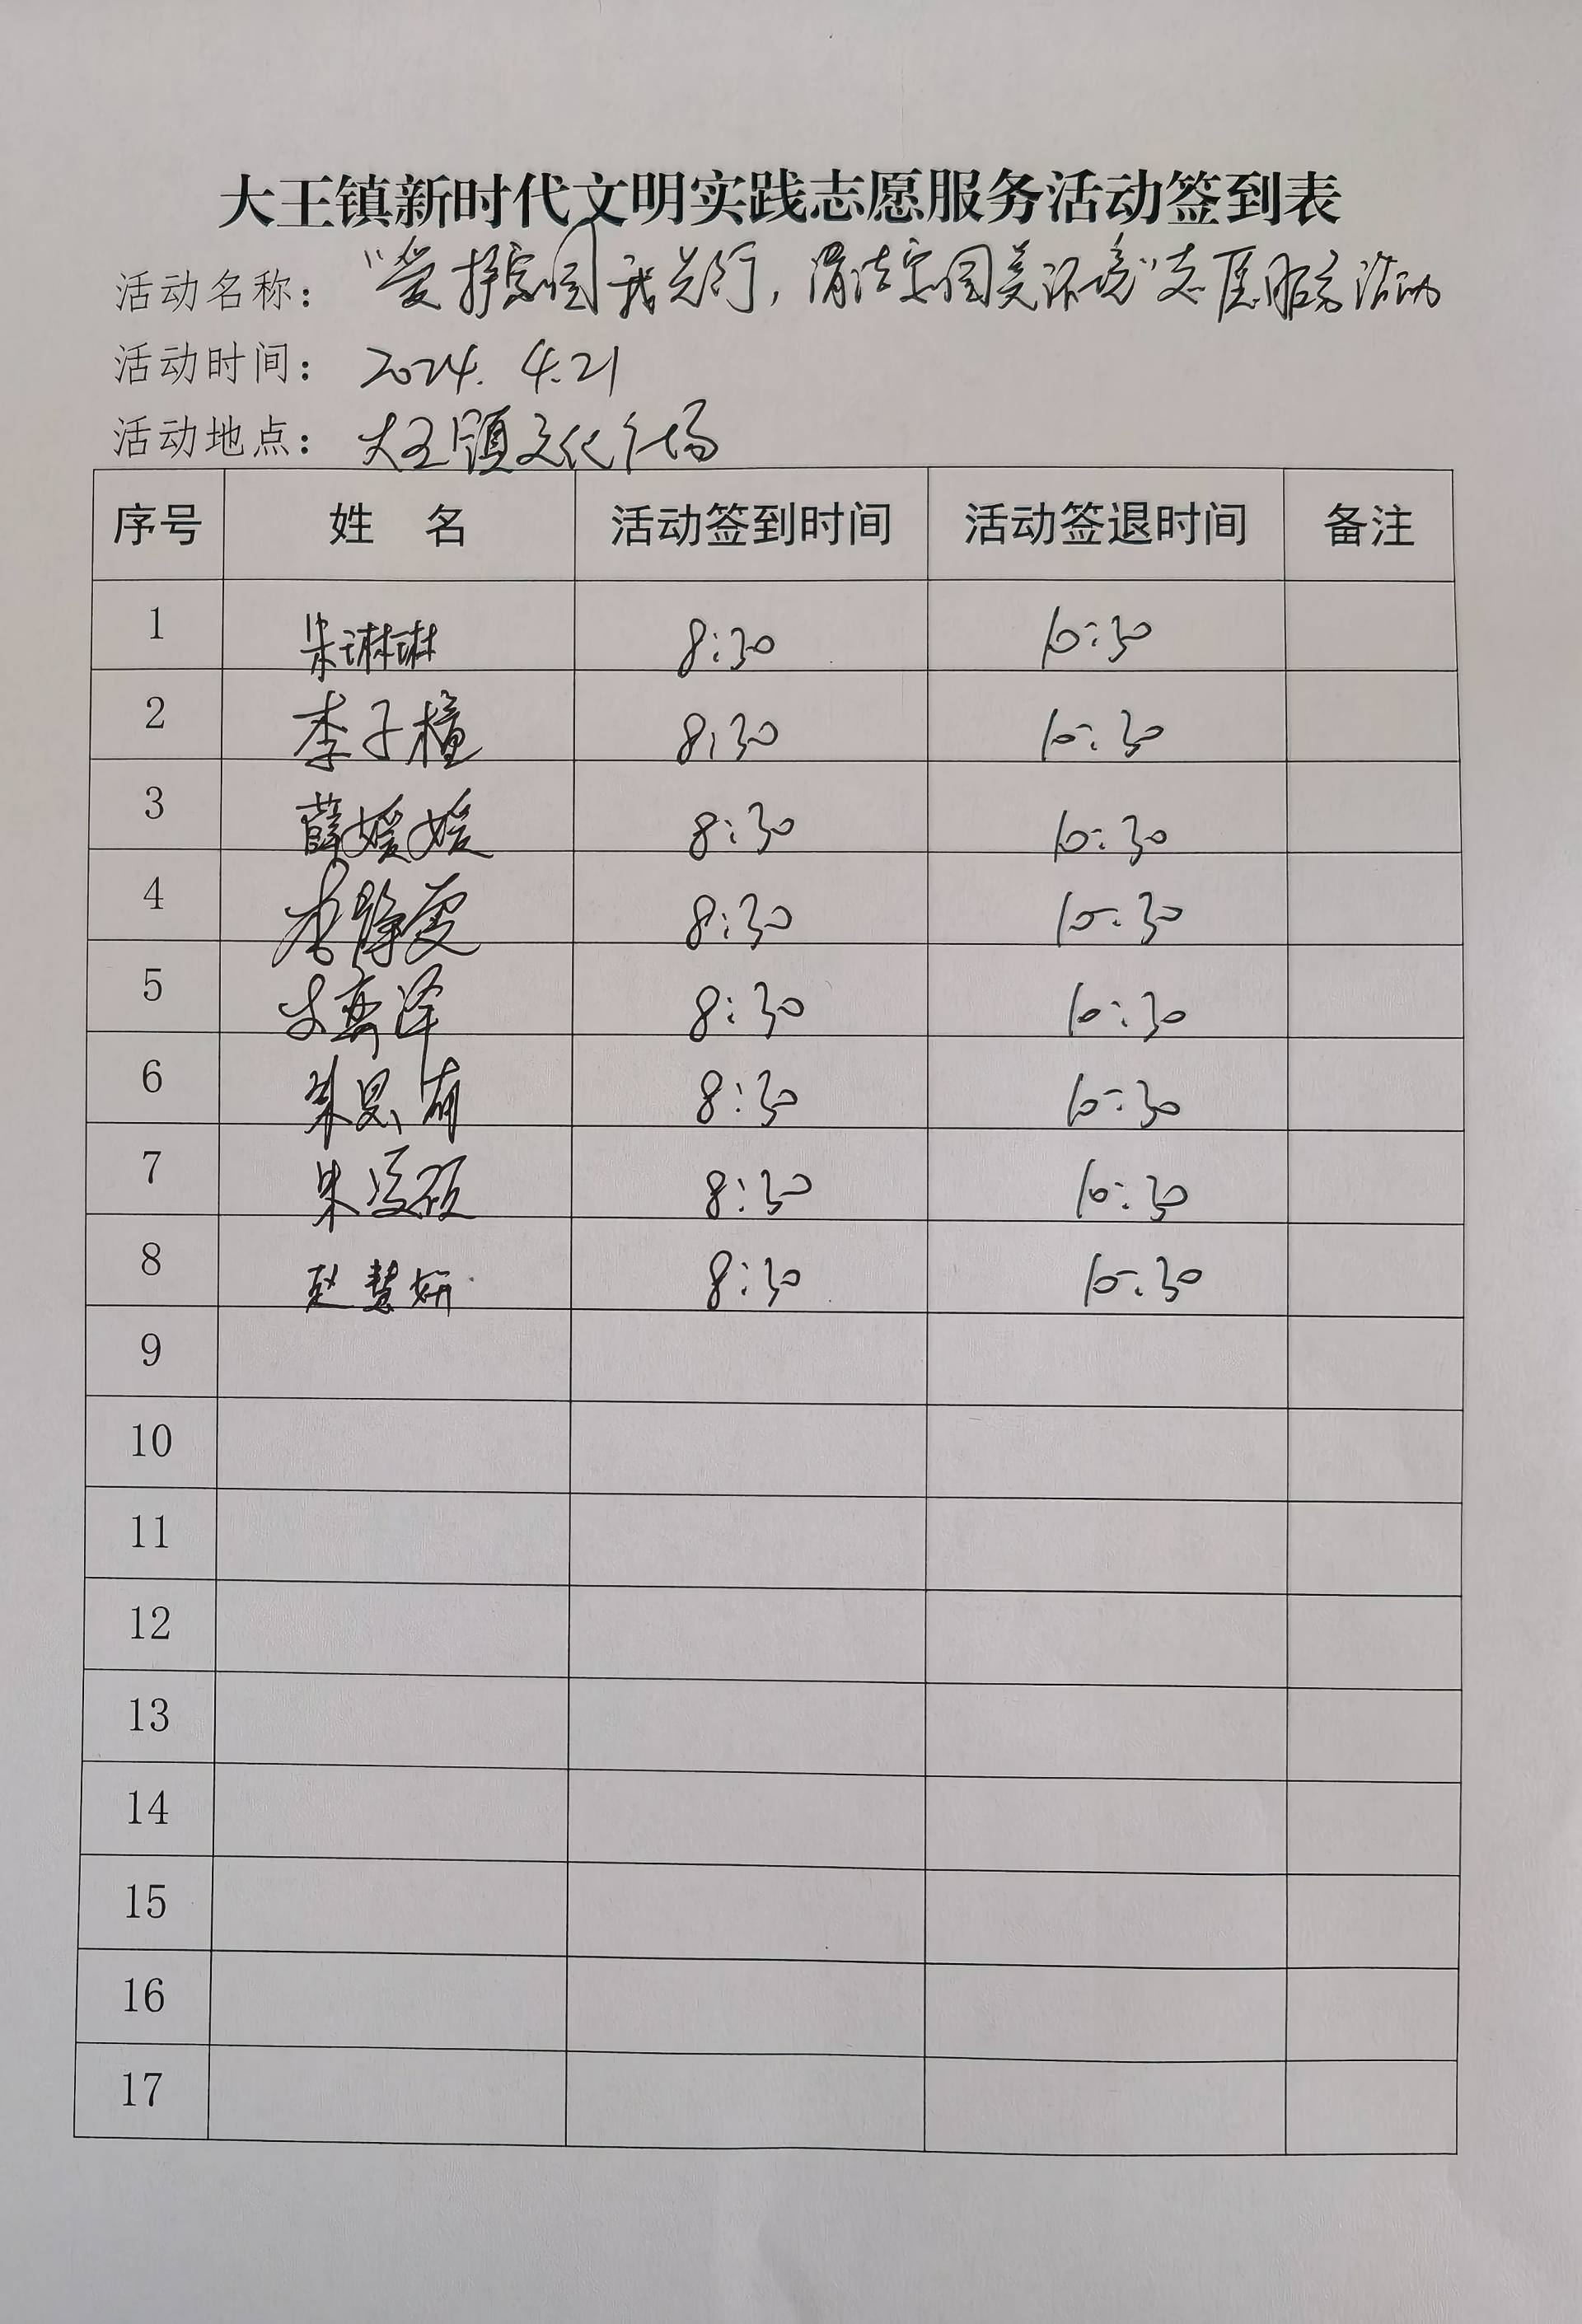 大王镇新时代文明实践志愿服务活动签到表
活动名称：“爱护家园我先行，清洁家园美环境”志愿服务活动
活动时间：2024.4.21
活动地点：大王镇文化广场
序号 姓 名 活动签到时间 活动签退时间 备注
1 朱琳琳 8:30 10:30
2 李子橦 8:30 10:30
3 薛媛媛 8:30 10:30
4 李静雯 8:30 10:30
5 8:30 10:30
6 朱恩 8:30 10:30
7 朱 8:30 10:30
8 赵慧妍 8:30 10:30
9
10
11
12
13
14
15
16
17